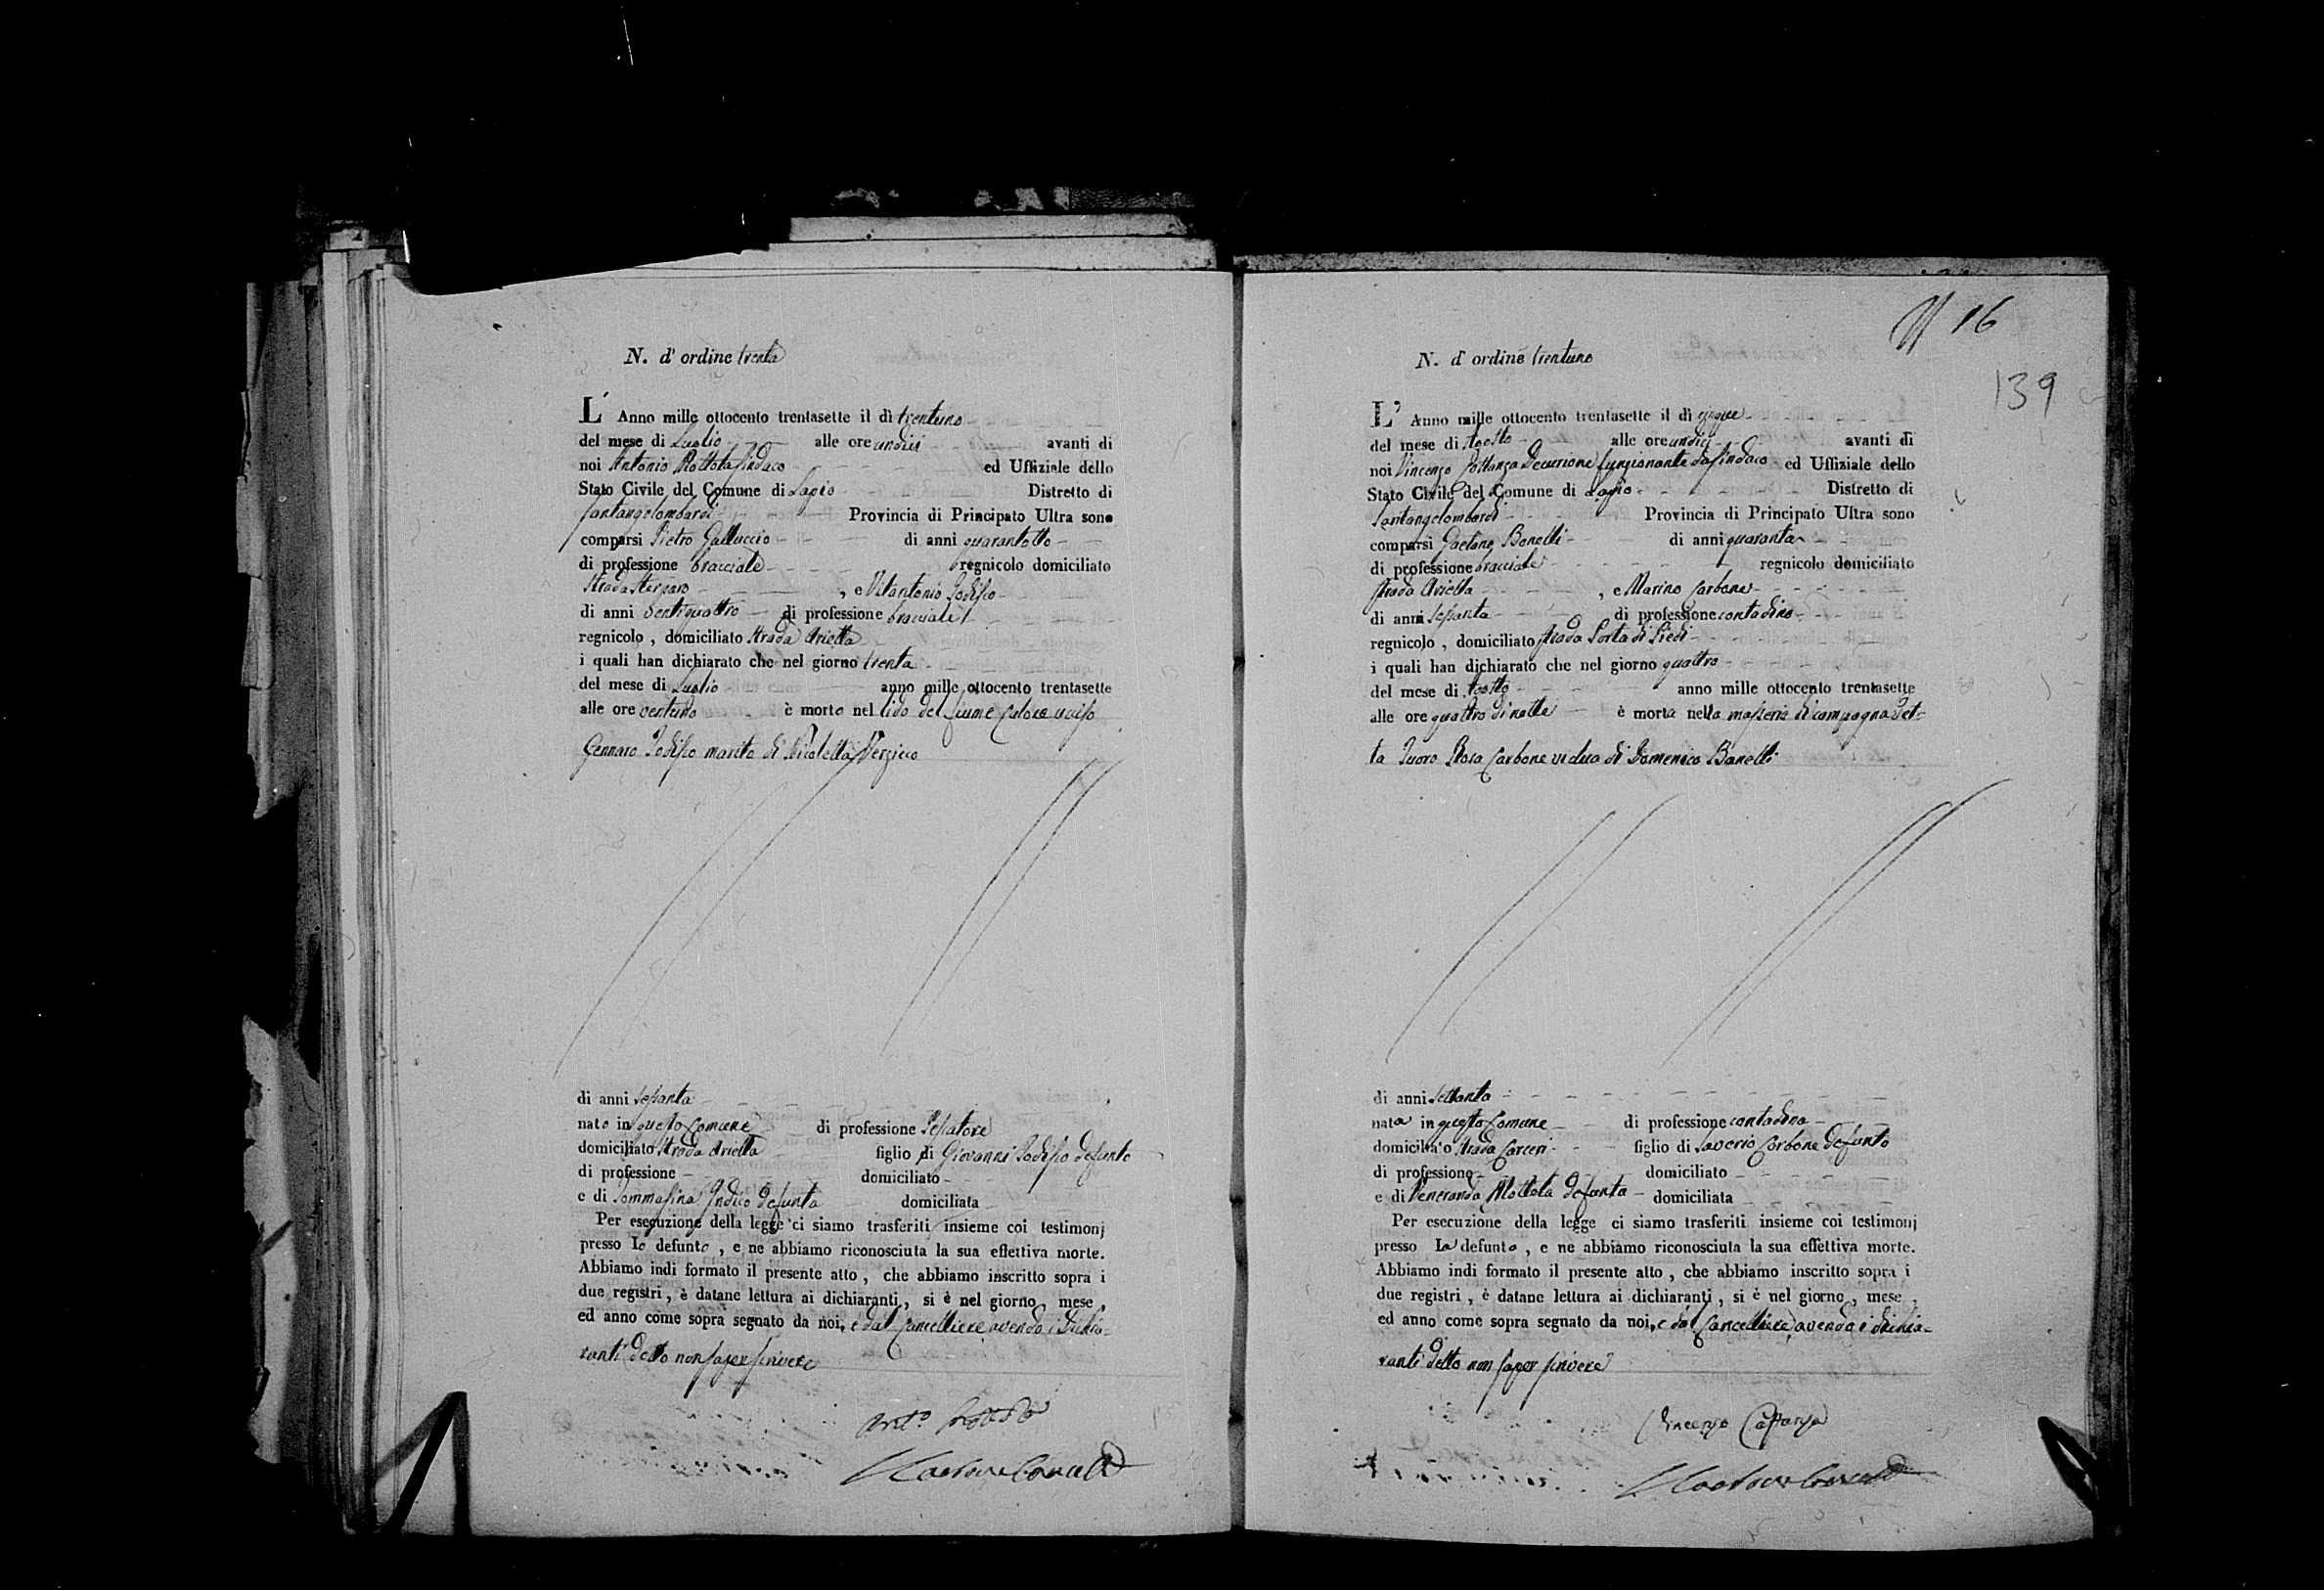 N. d' ordine trenta
L' Anno mille ottocento trentasette il dì trentuno
del mese di Luglio alle ore undici avanti di
noi Antonio Rottola Sindaco ed Uffiziale dello
Stato Civile del Comune di Lapio Distretto di
Santangelolombardi Provincia di Principato Ultra sono
comparsi Pietro Galluccio di anni quarantotto
di professione bracciale regnicolo domiciliato
Strada , e Vitantonio Iodisso
di anni ventiquattro di professione bracciale
regnicolo , domiciliato Strada Ariella
i quali han dichiarato che nel giorno trenta
del mese di Luglio anno mille ottocento trentasette
alle ore ventuno è morto nel lido del fiume Calore ucciso
Gennaro Iodisso marito di Nicoletta
di anni sessanta
nato in questo Comune di professione
domiciliato Strada Ariella figlio di Giovanni Iodisso defunto
di professione domiciliato
e di Tommasina Indico defunta domiciliata
Per esecuzione della legge ci siamo trasferiti insieme coi testimonj
presso lo defunto , e ne abbiamo riconosciuta la sua effettiva morte.
Abbiamo indi formato il presente atto , che abbiamo inscritto sopra i
due registri , è datane lettura ai dichiaranti , si è nel giorno , mese ,
ed anno come sopra segnato da noi, e dal Cancelliere avendo i dichia-
ranti detto non saper scrivere
Ant.o Rottola
16
139
N. d' ordine trentuno
L' Anno mille ottocento trentasette il dì cinque
del mese di Agosto alle ore undici avanti di
noi Vincenzo Costanza Decurione funzionante da Sindaco ed Uffiziale dello
Stato Civile del Comune di Lapio Distretto di
Santangelolombardi Provincia di Principato Ultra sono
comparsi Gaetano Bonelli di anni quaranta
di professione bracciale regnicolo domiciliato
Strada Ariella , e Marino Carbone
di anni sessanta di professione contadino
regnicolo , domiciliato Strada Porta di Piedi
i quali han dichiarato che nel giorno quattro
del mese di Agosto anno mille ottocento trentasette
alle ore quattro di notte è morta nella masseria di campagna det-
ta Tuoro Rosa Carbone vedua di Domenico Banelli
di anni settanta
nata in questo Comune di professione contadina
domiciliato Strada Carceri figlio di Saverio Carbone defunto
di professione domiciliato
e di Veneranda Mottola defunta domiciliata
Per esecuzione della legge ci siamo trasferiti insieme coi testimonj
presso la defunta , e ne abbiamo riconosciuta la sua effettiva morte.
Abbiamo indi formato il presente atto , che abbiamo inscritto sopra i
due registri , è datane lettura ai dichiaranti , si è nel giorno , mese ,
ed anno come sopra segnato da noi, e dal Cancelliere avendo i dichia-
ranti detto non saper scrivere
Vincenzo Costanza